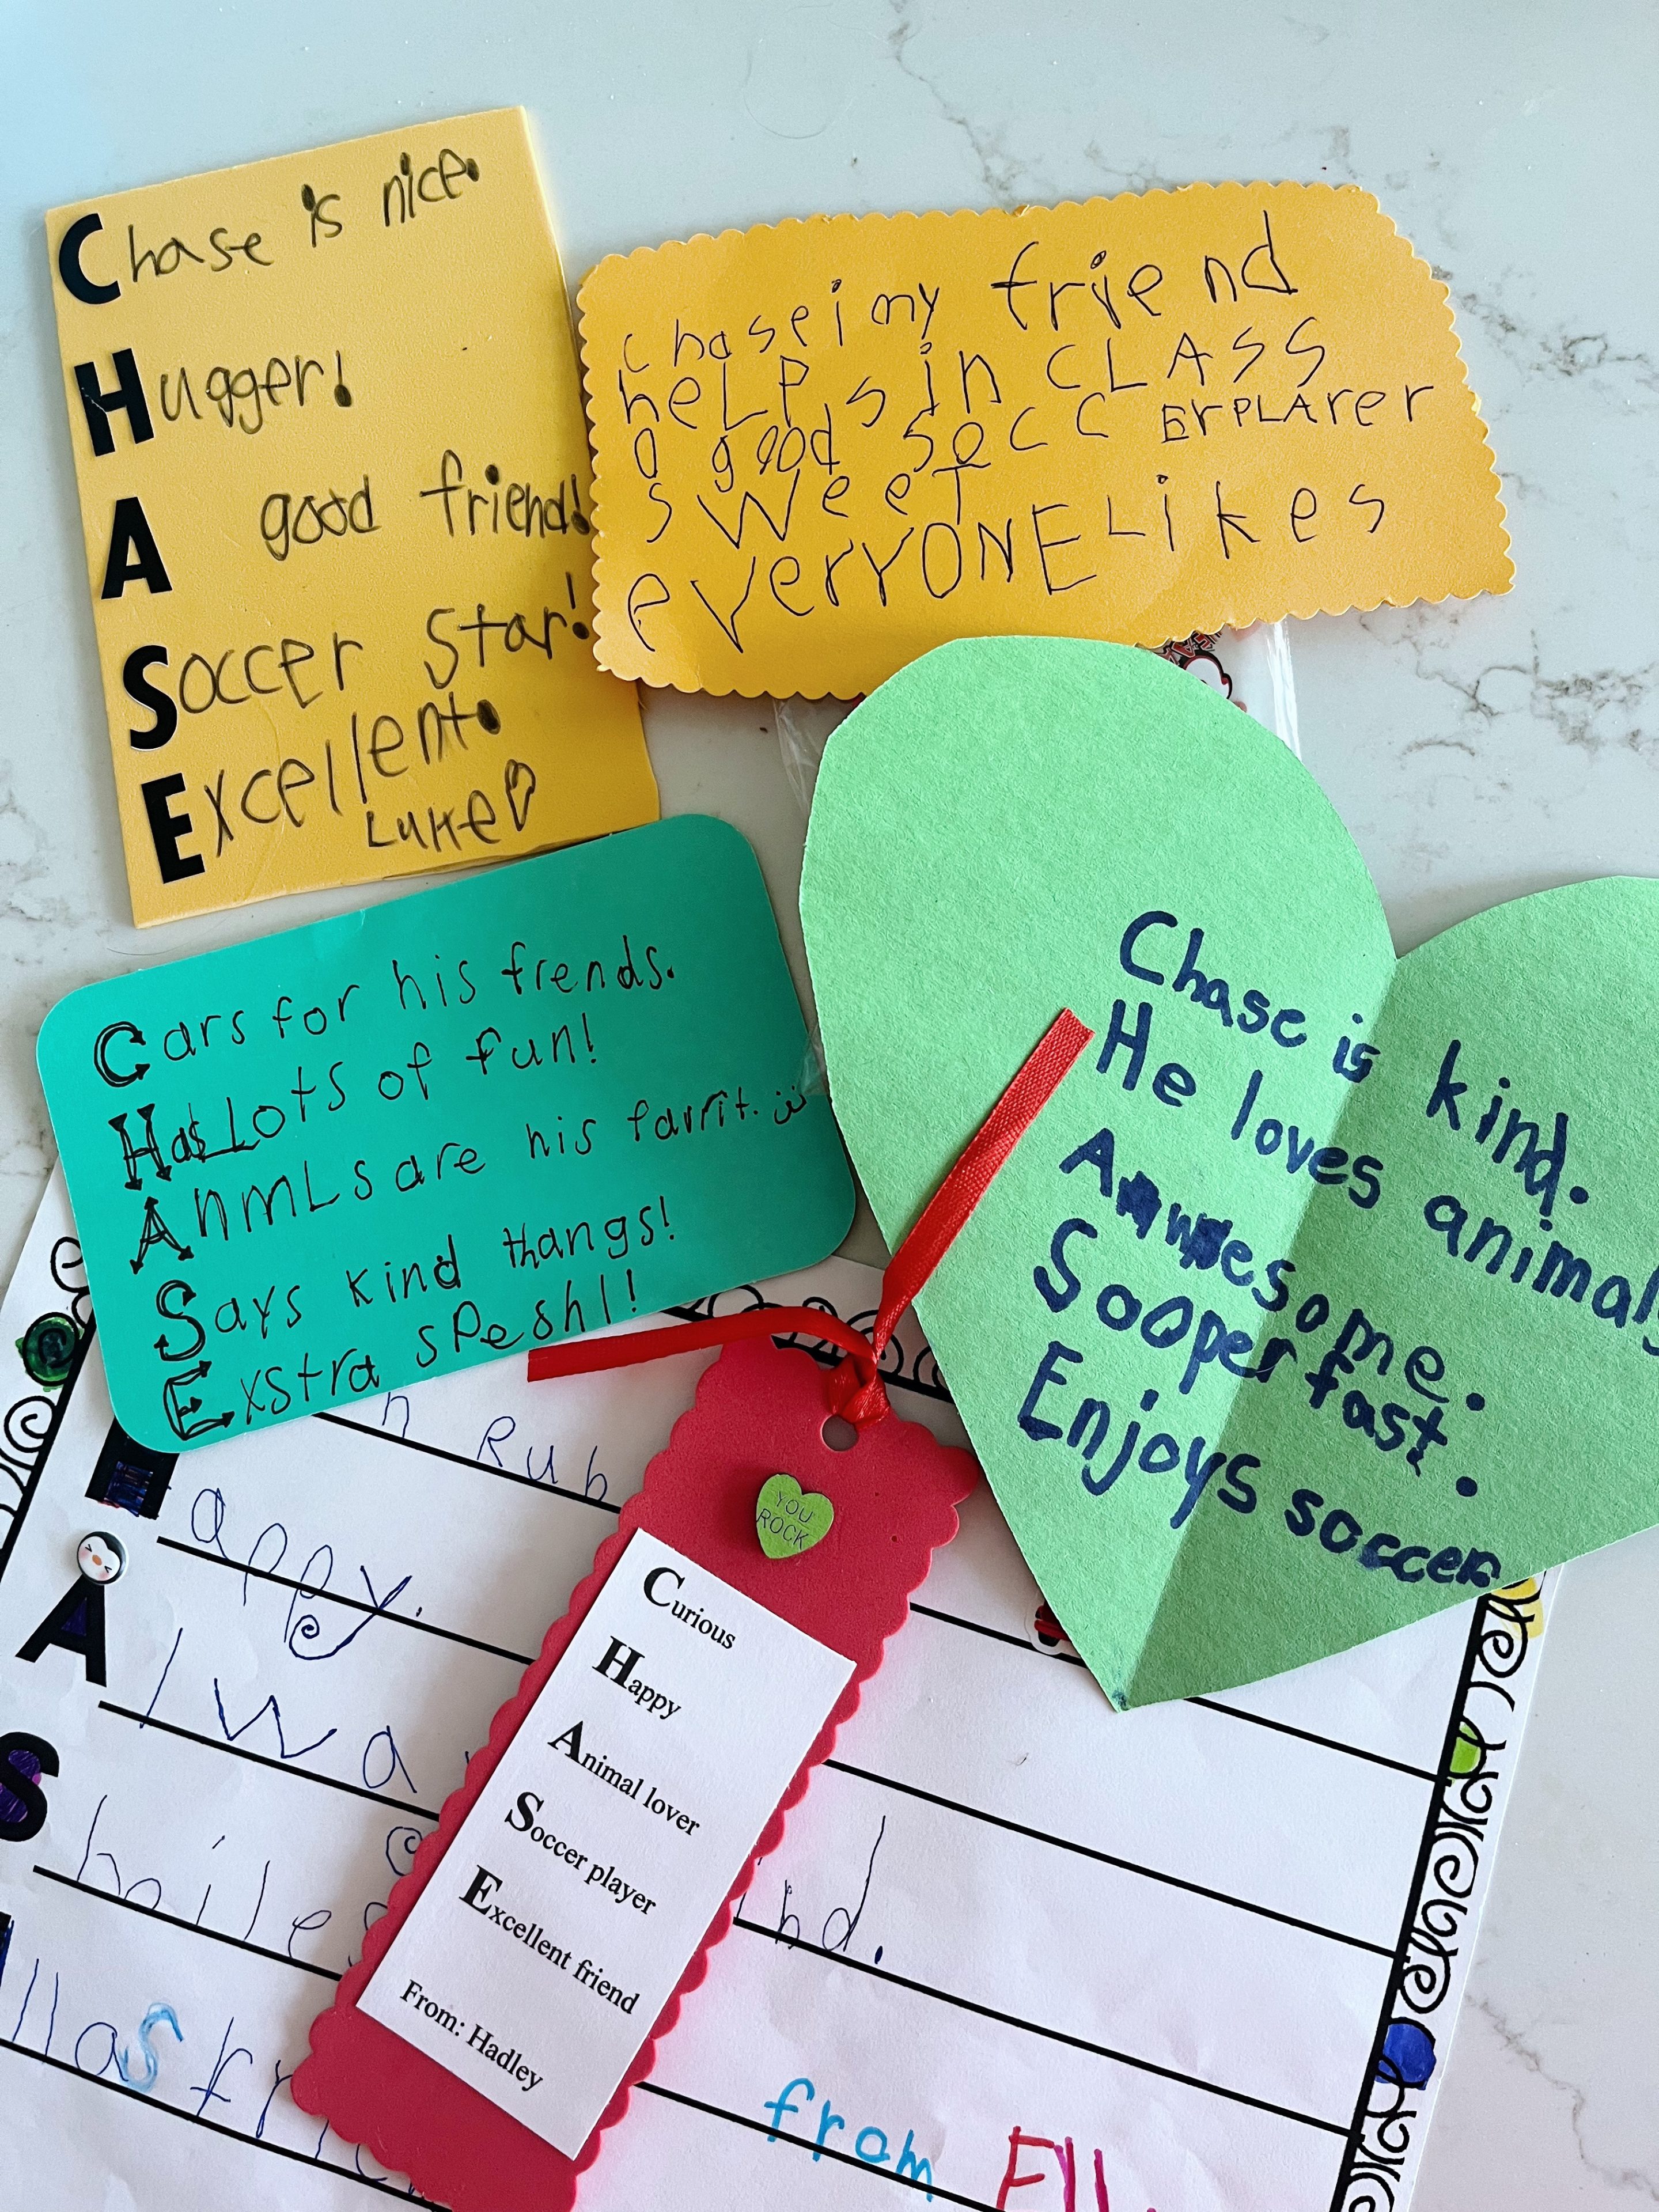 Chase is nice.
Hugger!
A good friend!
Soccer Star!
Excellent.
Luke
chase i my friend
heLPs in CLASS
a good SocC ErPLArer
sWeeT
eVerYONE Likes
Cars for his frends.
Has Lots of fun!
AnmLs are his favrit.
Says kind thangs!
Exstra sPeshl!
Chase is kind.
He loves animals
Awesome.
Sooper fast.
Enjoys soccer
n Rub
Happy.
Alwa
Smiles
nd.
llas fri
from Ell
YOU
ROCK
Curious
Happy
Animal lover
Soccer player
Excellent friend
From: Hadley